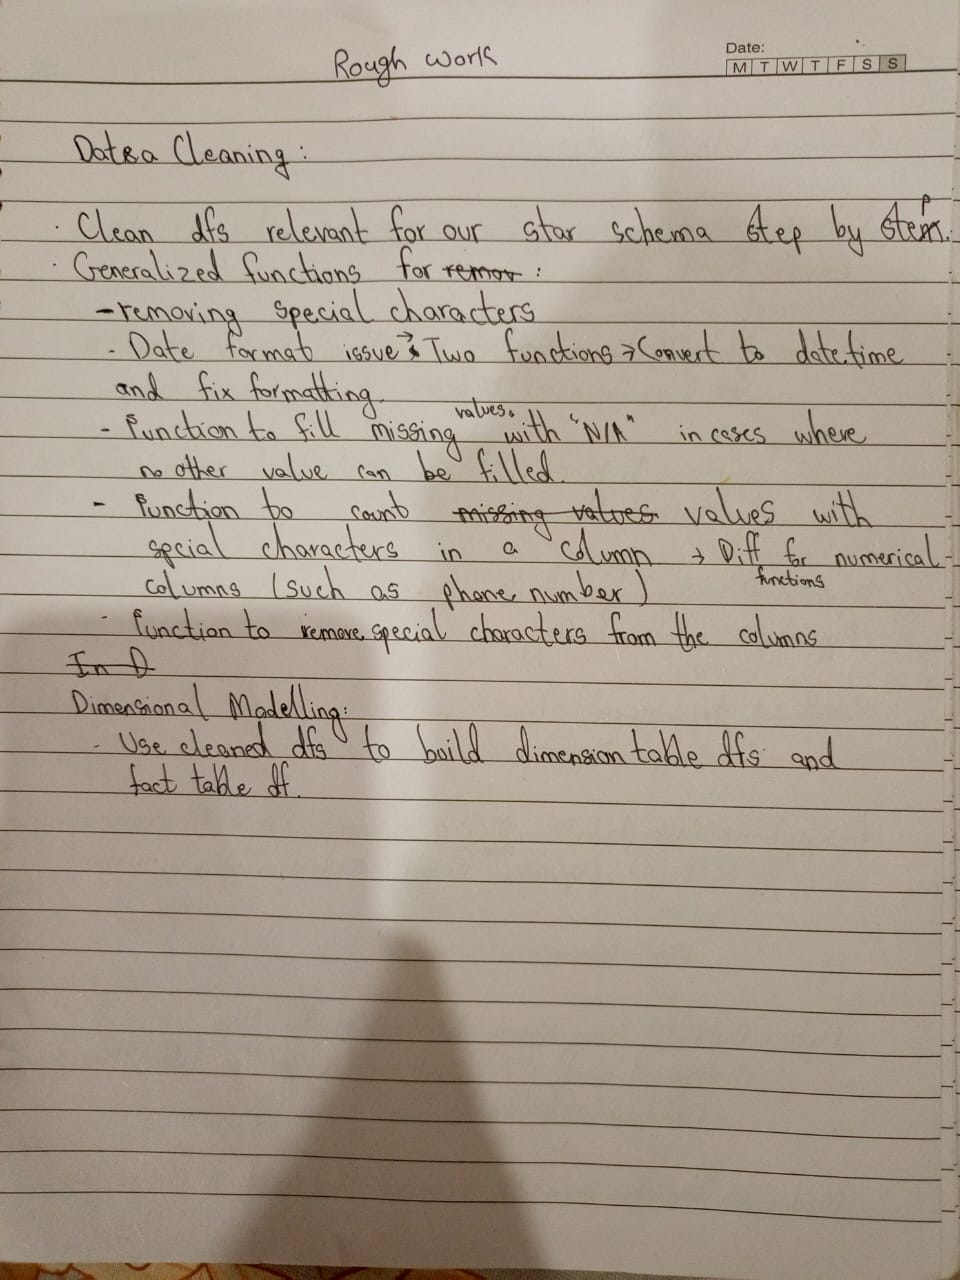 Rough Work
Date:
M T W T F S S
Data Cleaning:
· Clean dfs relevant for our star schema step by step.
· Generalized functions for remov :
- removing special characters
- Date format issue → Two functions → Convert to datetime
and fix formatting.
- Function to fill missing values with "N/A" in cases where
no other value can be filled.
- Function to count missing values values with
special characters in a column → Diff functions for numerical
columns (such as phone number)
- Function to remove special characters from the columns
In D
Dimensional Modelling:
- Use cleaned dfs to build dimension table dfs and
fact table df.